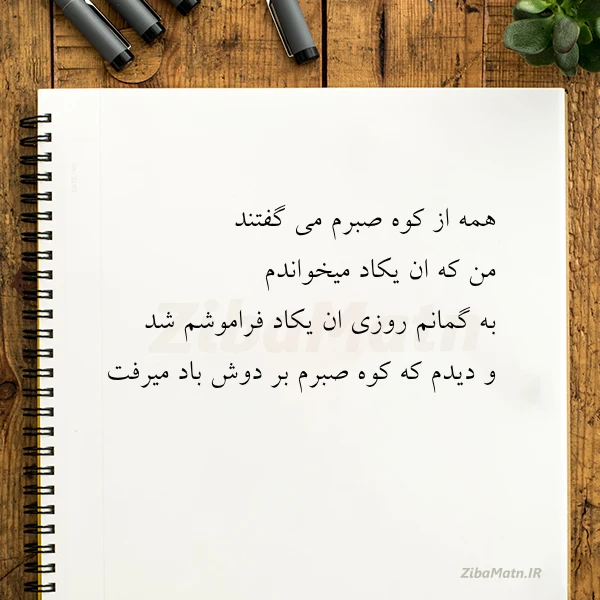 همه از کوه صبرم می گفتند
من که ان یکاد میخواندم
به گمانم روزی ان یکاد فراموشم شد
و دیدم که کوه صبرم بر دوش باد میرفت
ZibaMatn
ZibaMatn.IR